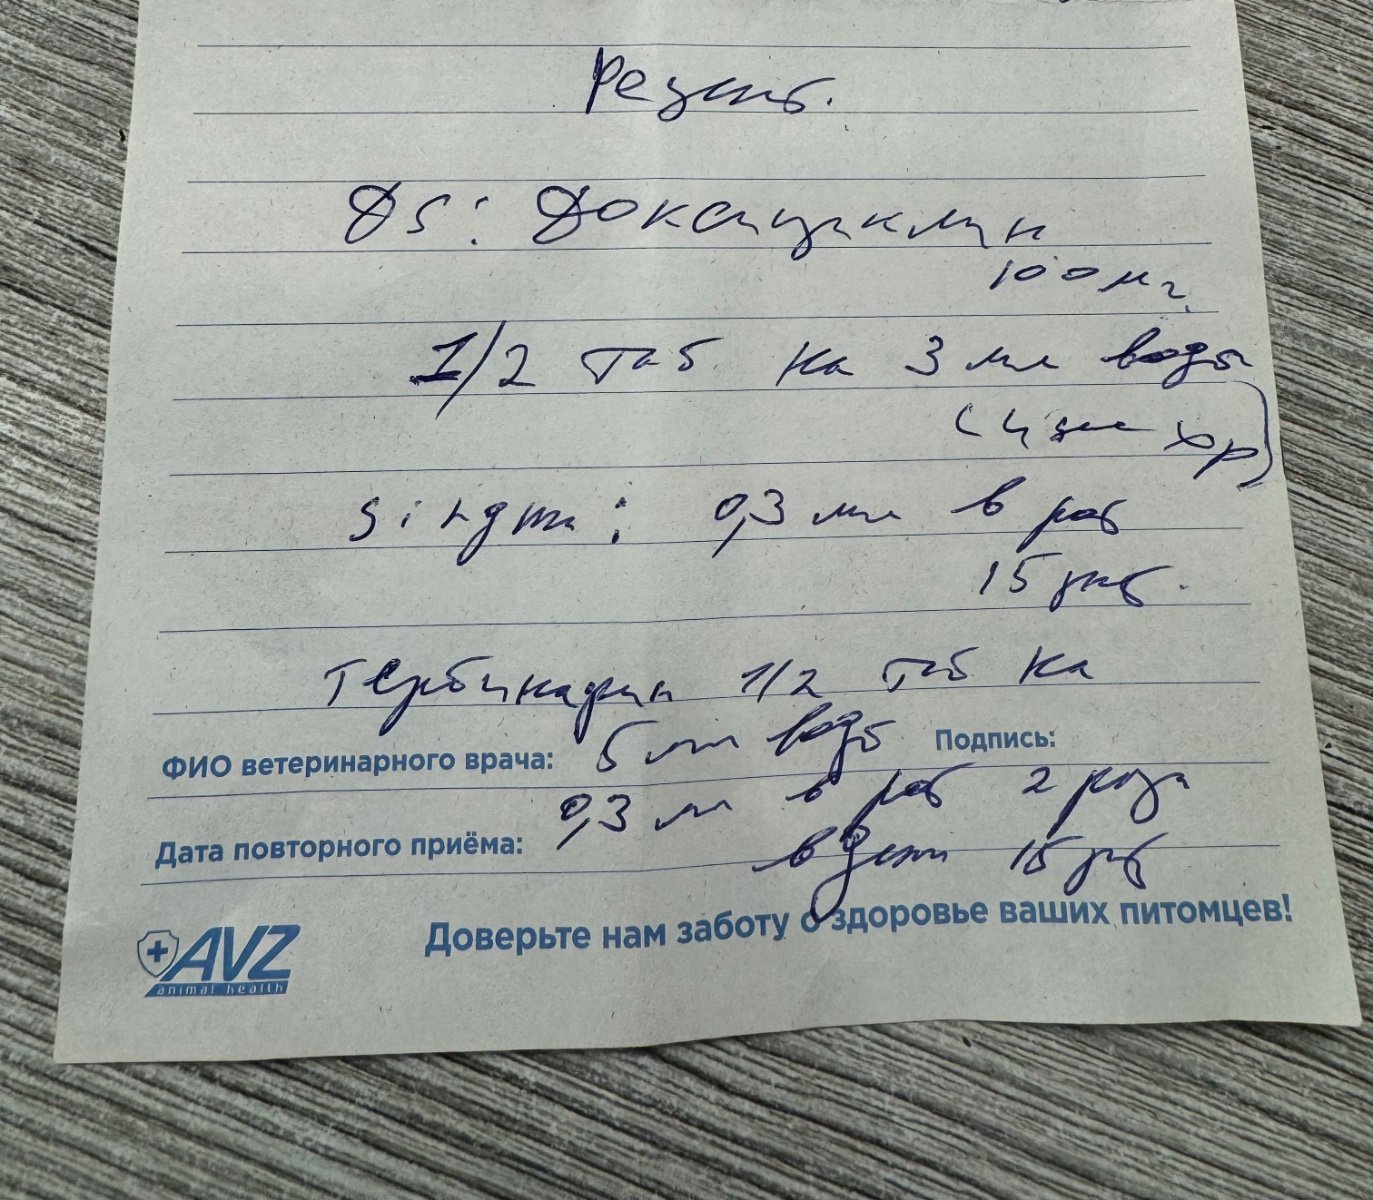 Рецепт.
Ds: Доксициклин
100 мг.
1/2 таб на 3 мл воды
0,3 мл в рот
15 дней.
Тербинафин 1/2 таб на
ФИО ветеринарного врача: 5 мл воды Подпись:
0,3 мл в рот 2 раза
Дата повторного приёма: в день 15 дней
AVZ
animal health
Доверьте нам заботу о здоровье ваших питомцев!